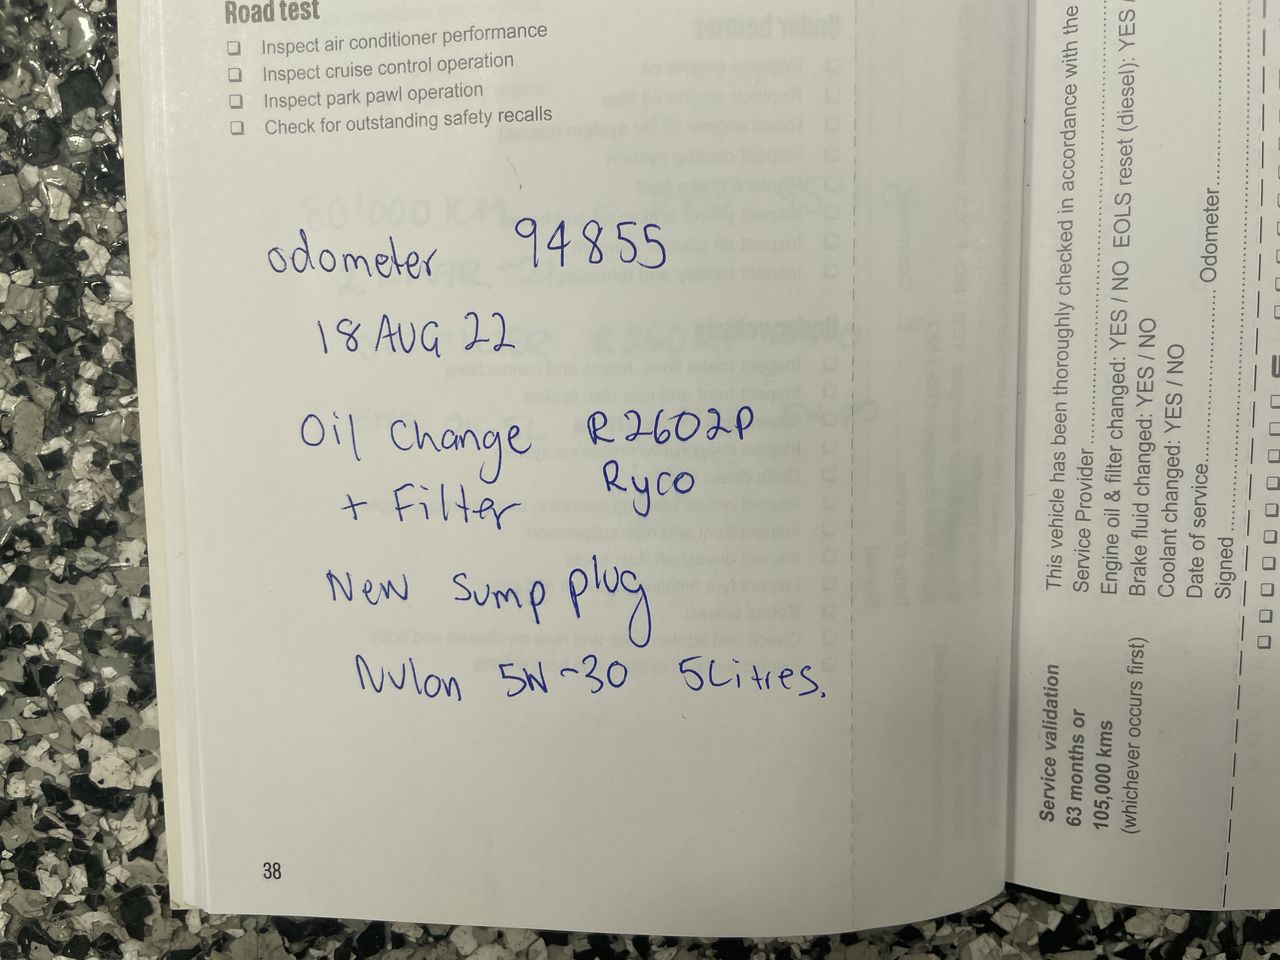 Road test
❑ Inspect air conditioner performance
❑ Inspect cruise control operation
❑ Inspect park pawl operation
❑ Check for outstanding safety recalls
odometer 94855
18 AUG 22
Oil Change R2602P
+ Filter Ryco
New Sump plug
Nulon 5W-30 5Litres.
38
Service validation
63 months or
105,000 kms
(whichever occurs first)
This vehicle has been thoroughly checked in accordance with the
Service Provider
Engine oil & filter changed: YES / NO EOLS reset (diesel): YES /
Brake fluid changed: YES / NO
Coolant changed: YES / NO
Date of service Odometer
Signed